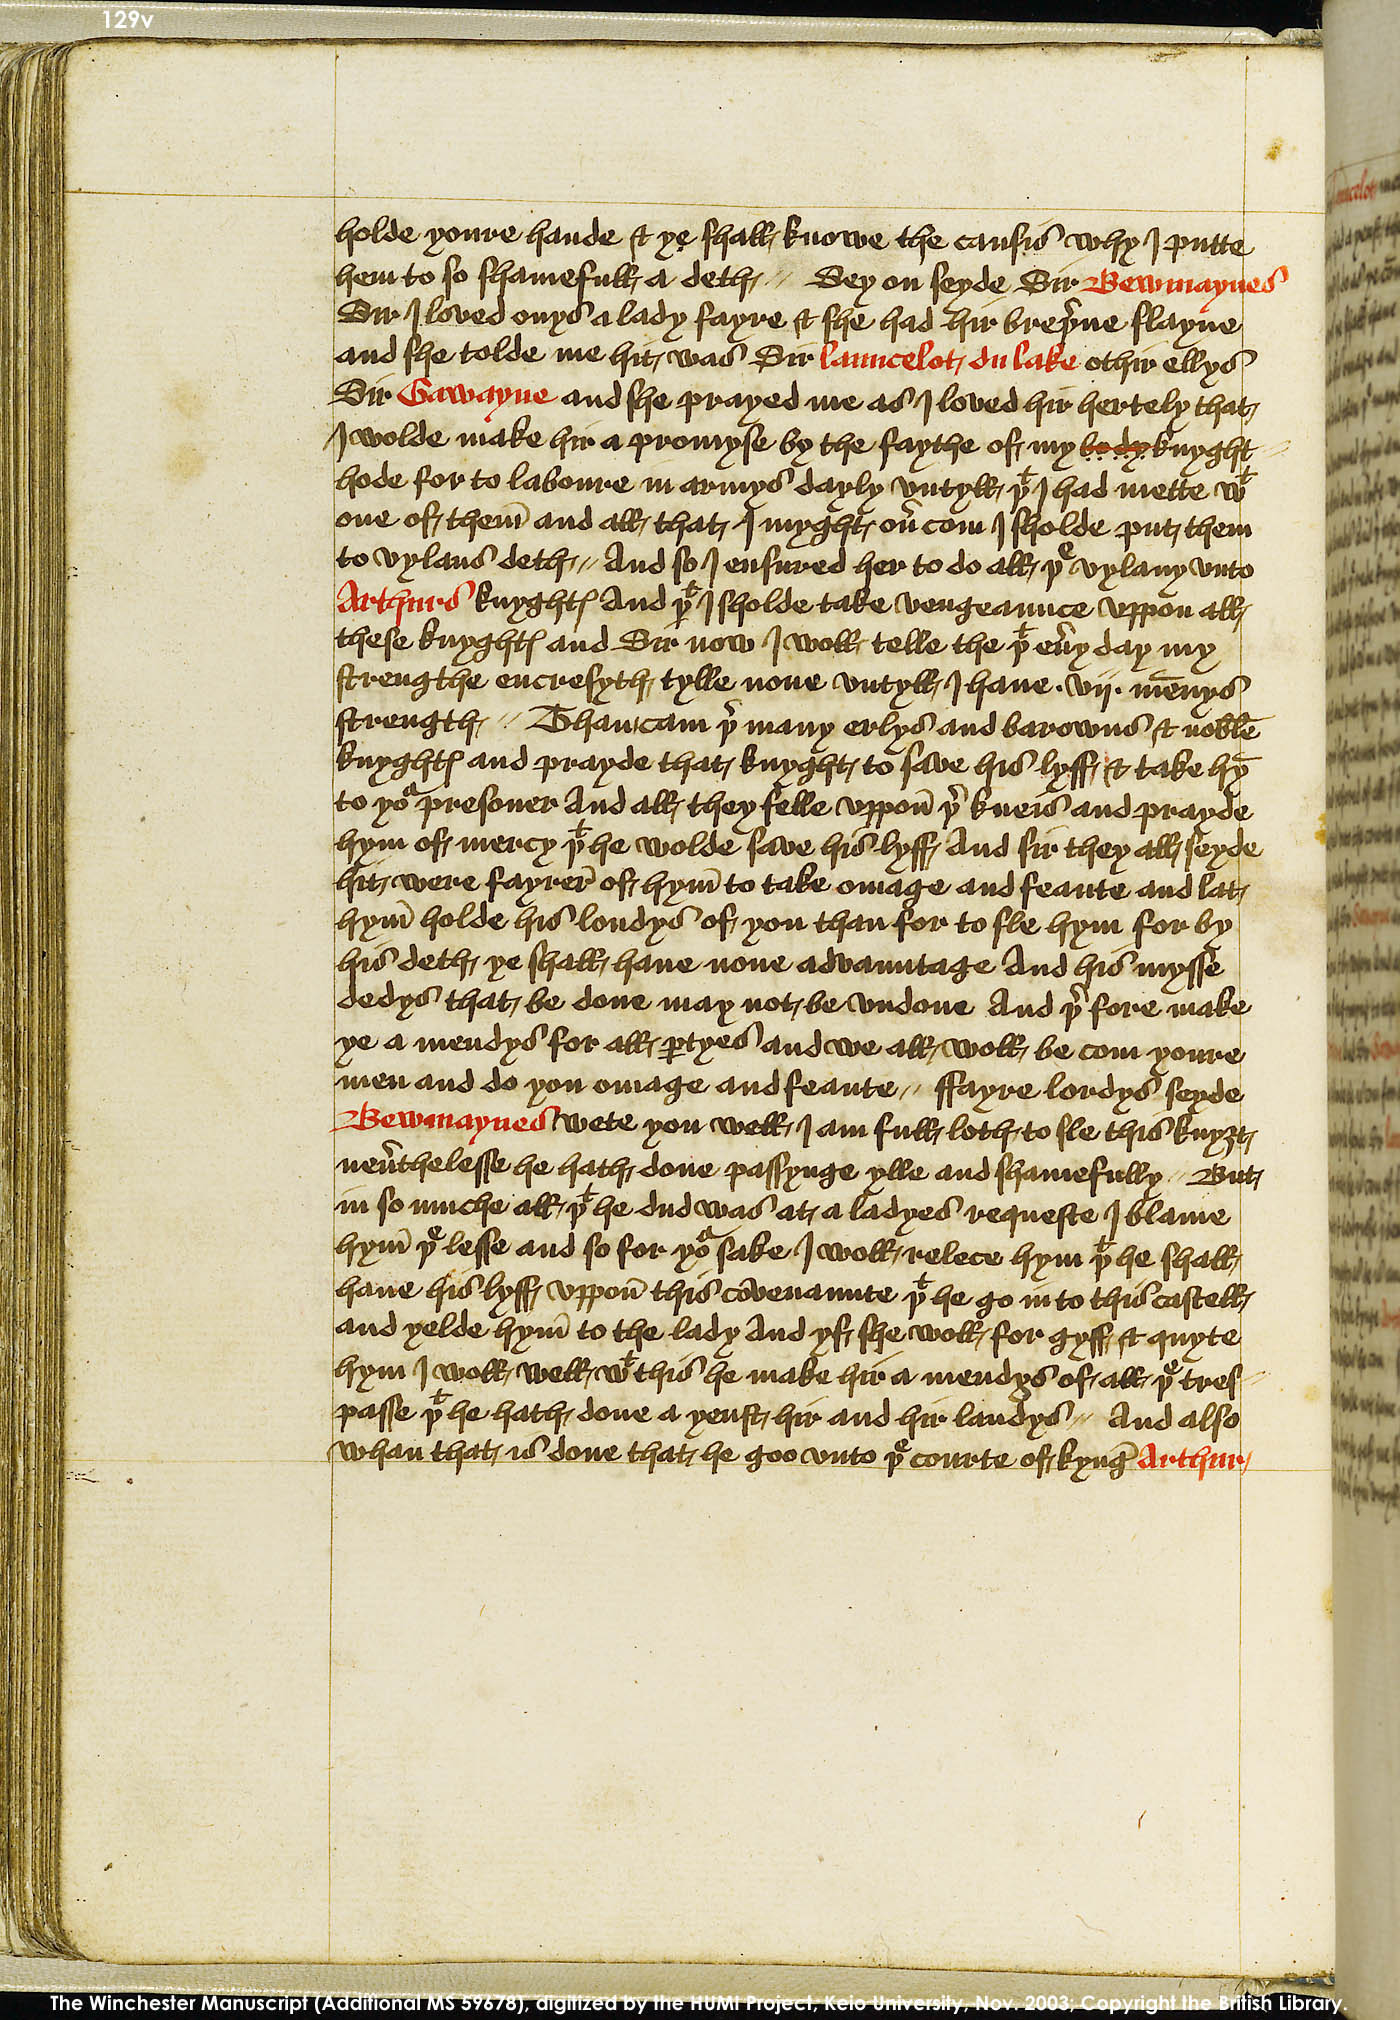 129v
holde youre hande & ye shall knowe the causis why I putte
hem to so shamefull a deth // Sey on seyde Sir Bewmaynes
Sir I loved onys a lady fayre & she had hir breþ̉ne slayne
and she tolde me hit was Sir launcelot du lake othir ellys
Sir Gawayne and she prayed me as I loved hir hertely that
I wolde make hir a promyse by the faythe of my body knyght
hode for to laboure in armys dayly vntyll þᵗ I had mette wᵗ
one of them̄ and all that I myght oủcom I sholde put them
to vylans deth // And so I ensured her to do all þᵉ vylany vnto
Arthurs knyghtꝭ And þᵗ I sholde take vengeaunce vppon all
these knyghtꝭ and Sir now I woll telle the þᵗ eủy day my
strengthe encresyth tylle none vntyll I haue .vij. men̄ys
strength // Than cam þ̉ many erlys and barowns & noble
knyghtꝭ and prayde that knyght to save his lyff & take hȳ
to yoʳ presoner And all they felle vppon̄ þ̉ kneis and prayde
hym of mercy þᵗ he wolde save his lyff And sir they all seyde
hit were fayrer̄ of hym̄ to take omage and feaute and lat
hym̄ holde his londys of you than for to sle hym for by
his deth ye shall haue none advauntage And his mysse
dedys that be done may not be vndone And þ̉fore make
ye a mendys for all ꝑtyes and we all woll be com youre
men and do you omage and feaute // ffayre lordys seyde
Bewmaynes wete you well I am full loth to sle this knyȝt
neủthelesse he hath done passynge ylle and shamefully // But
in so muche all þᵗ he dud was at a ladyes requeste I blame
hym̄ þᵉ lesse and so for yoʳ sake I woll relece hym þᵗ he shall
haue his lyff vppon̄ this cōvenaunte þᵗ he go in to this castell
and yelde hym̄ to the lady And yf she woll for gyff & quyte
hym I woll well wᵗ this he make hir a mendys of all þᵉ tres
passe þᵗ he hath done a yenst hir and hir landys // And also
whan that is done that he goo vnto þᵉ courte of kynḡ Arthur
The Winchester Manuscript (Additional MS 59678), digitized by the HUMI Project, Keio University, Nov. 2003; Copyright the British Library.